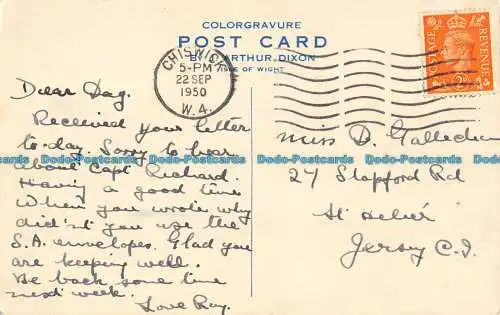 COLORGRAVURE
POST CARD
BY ARTHUR DIXON
ISLE OF WIGHT
CHISWICK
5-PM
22 SEP
1950
W.4.
POSTAGE
REVENUE
Dear Dag.
Received your letter
to-day. Sorry to hear
about Capt Richard.
Having a good time
When you wrote why
didn't you use the
S.A. envelopes. Glad you
are keeping well.
Be back some time
next week.
Love Ray.
Miss D.
27 Stopford Rd
St Helier
Jersey C.I
Dodo-Postcards Dodo-Postcards Dodo-Postcards Dodo-Postcards